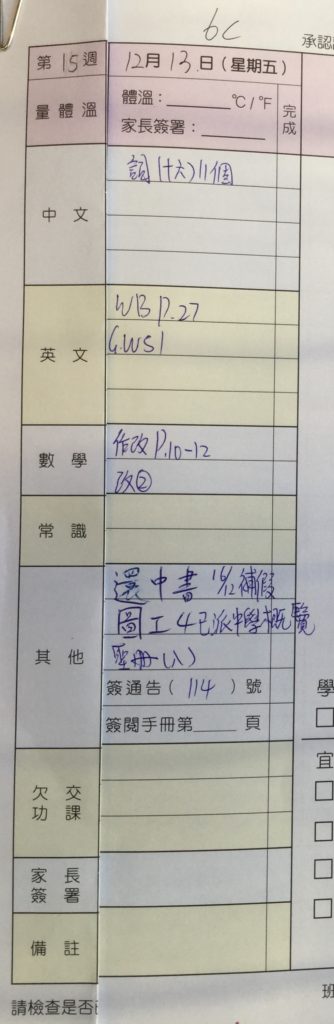 6C
承認
第15週 12月13日(星期五)
量體溫 體溫:______°C/°F 完成
家長簽署:______
中文 詞(十六)11個
英文 WB P.27
G.WS1
數學 作改P.10-12
改②
常識
其他 還中書 16/12補假
圖工4 已派中學概覽
聖冊(入)
簽通告( 114 )號
簽閱手冊第____頁
學
宜
欠交功課
家長簽署
備註
班
請檢查是否